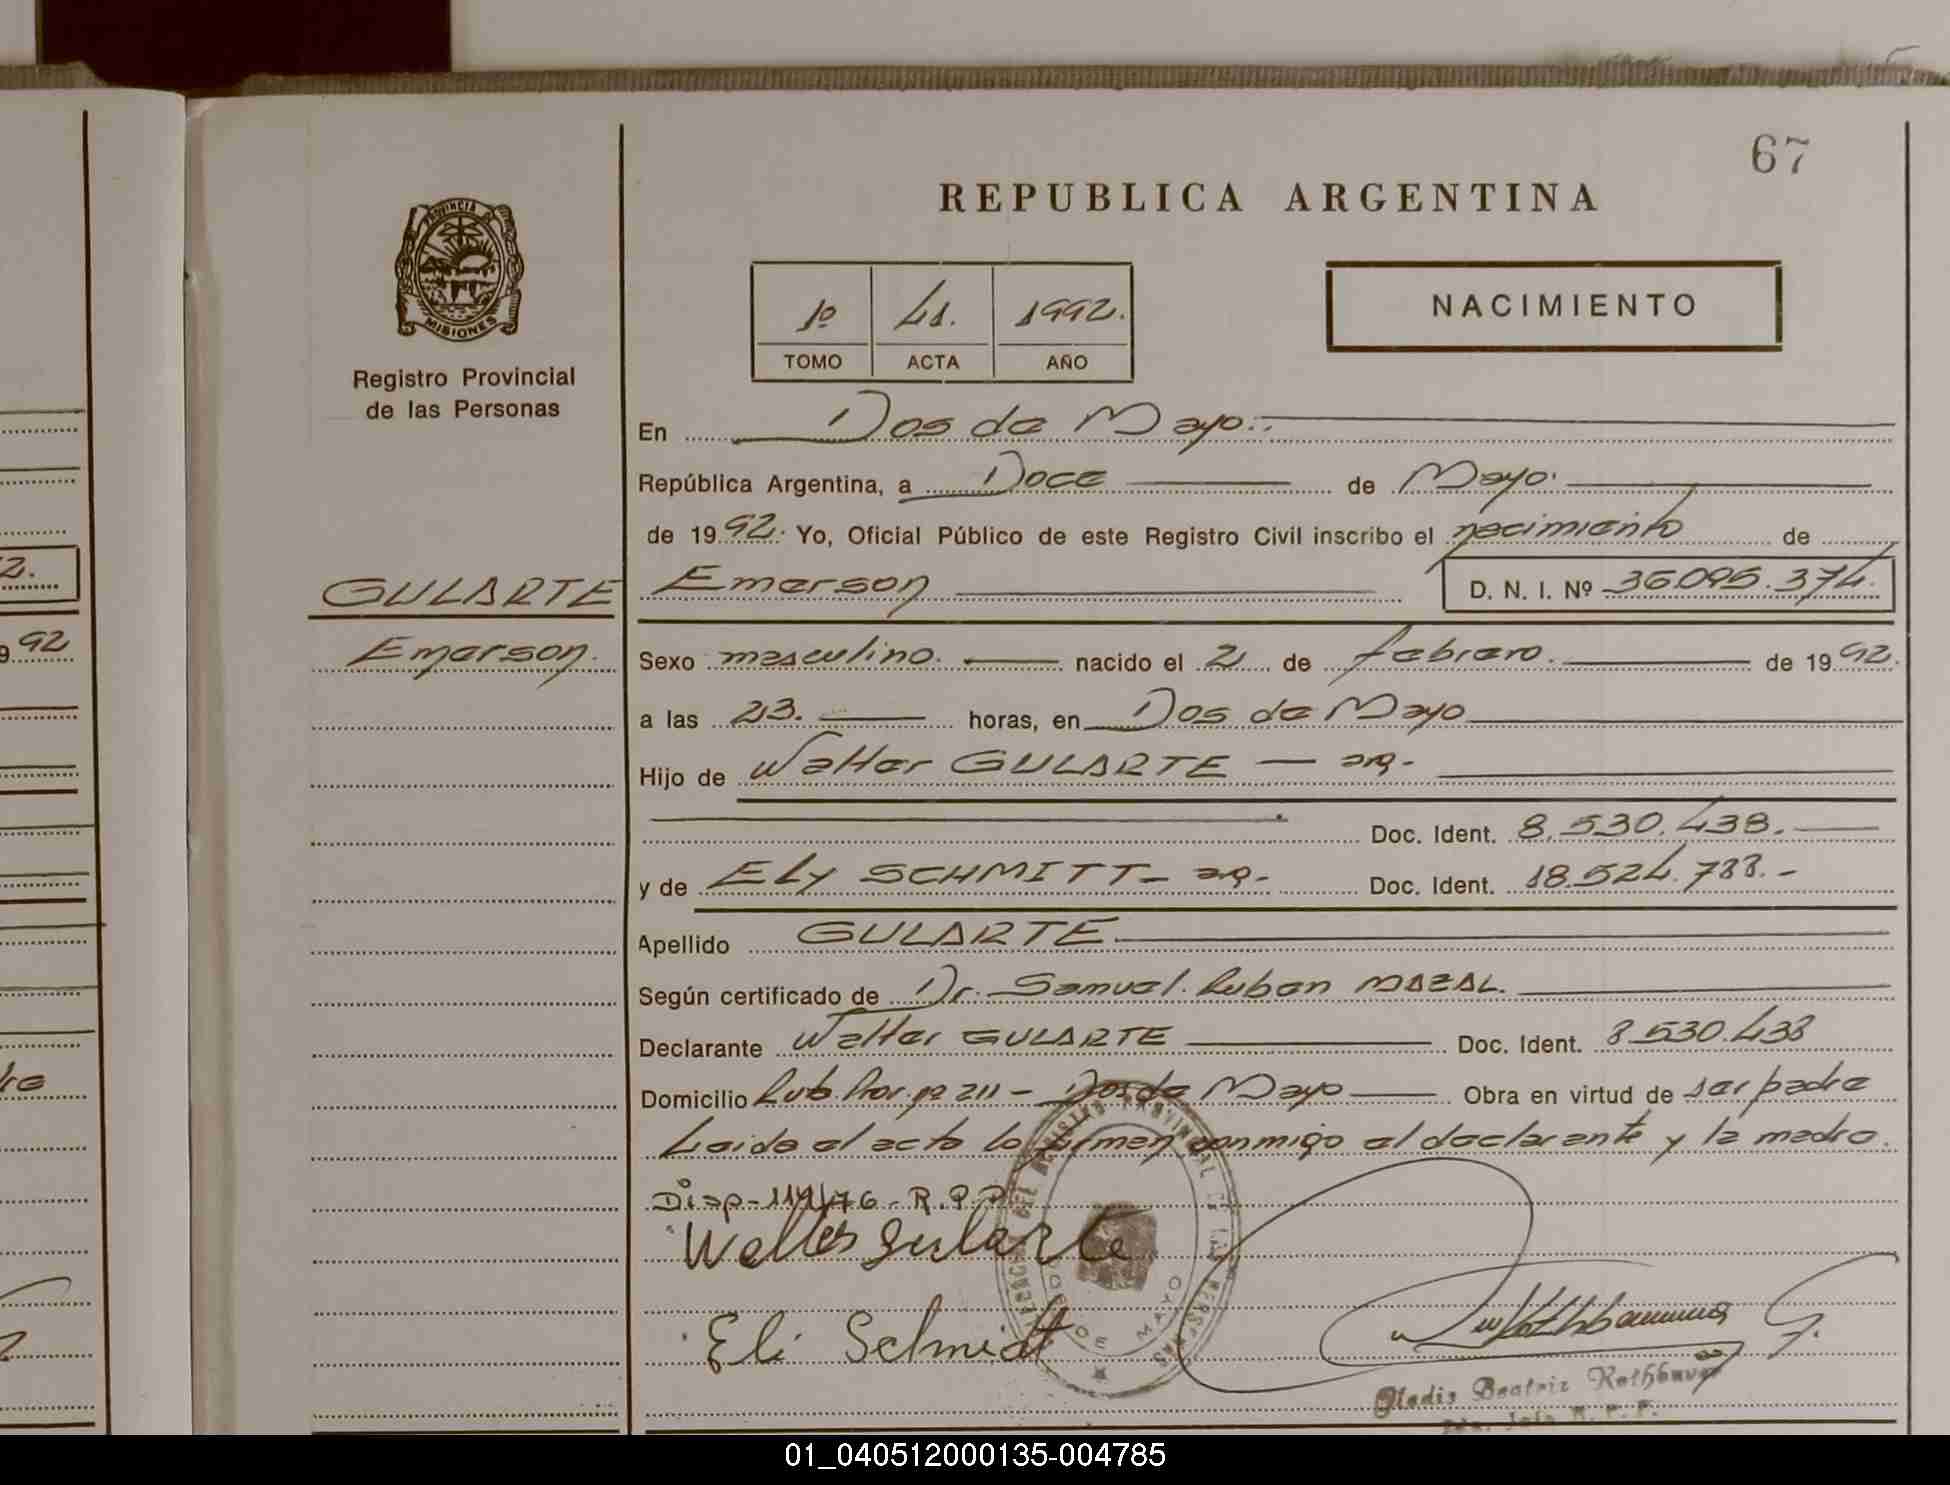 67
REPUBLICA ARGENTINA
PROVINCIA DE
MISIONES
Registro Provincial
de las Personas
1º 41. 1992.
TOMO ACTA AÑO
NACIMIENTO
En Dos de Mayo.
República Argentina, a Doce de Mayo.
de 1992. Yo, Oficial Público de este Registro Civil inscribo el nacimiento de
GULARTE Emerson D. N. I. Nº 36.095.374.
Emerson.
Sexo masculino. nacido el 2 de febrero. de 1992.
a las 23. horas, en Dos de Mayo
Hijo de Walter GULARTE — arg.
Doc. Ident. 8.530.438.
y de Ely SCHMITT - arg. Doc. Ident. 18.524.788.-
Apellido GULARTE
Según certificado de Dr. Samuel Ruben MAZAL.
Declarante Walter GULARTE Doc. Ident. 8.530.438
Domicilio Rut. Prov. nº 211 - Dos de Mayo Obra en virtud de ser padre
Leida el acta la firman conmigo el declarante y la madre.
Disp- R.P.P.
Walter gularte
Eli Schmidt
DOS DE MAYO
Gladis Beatriz Rothbauer
92
01_040512000135-004785